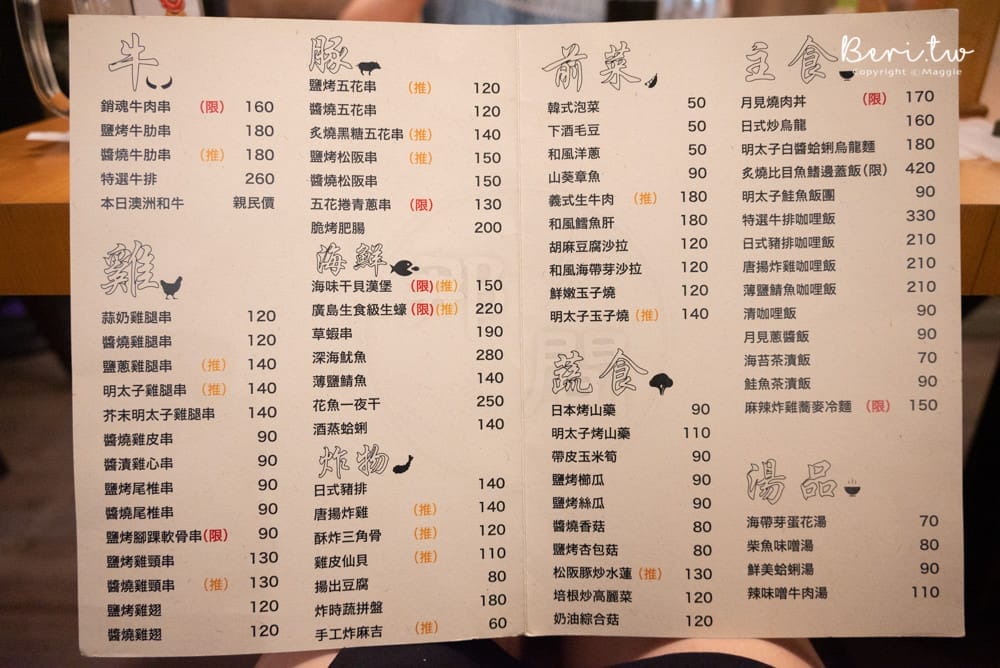 Beri.tw
Copyright ©Maggie
牛
銷魂牛肉串 (限) 160
鹽烤牛肋串 180
醬燒牛肋串 (推) 180
特選牛排 260
本日澳洲和牛 親民價
雞
蒜奶雞腿串 120
醬燒雞腿串 120
鹽蔥雞腿串 (推) 140
明太子雞腿串 (推) 140
芥末明太子雞腿串 140
醬燒雞皮串 90
醬漬雞心串 90
鹽烤尾椎串 90
醬燒尾椎串 90
鹽烤腳踝軟骨串(限) 90
鹽烤雞頸串 130
醬燒雞頸串 (推) 130
鹽烤雞翅 120
醬燒雞翅 120
豚
鹽烤五花串 (推) 120
醬燒五花串 120
炙燒黑糖五花串 (推) 140
鹽烤松阪串 (推) 150
醬燒松阪串 150
五花捲青蔥串 (限) 130
脆烤肥腸 200
海鮮
海味干貝漢堡 (限)(推) 150
廣島生食級生蠔 (限)(推) 220
草蝦串 190
深海魷魚 280
薄鹽鯖魚 140
花魚一夜干 250
酒蒸蛤蜊 140
炸物
日式豬排 140
唐揚炸雞 (推) 140
酥炸三角骨 (推) 120
雞皮仙貝 (推) 110
揚出豆腐 80
炸時蔬拼盤 180
手工炸麻吉 (推) 60
前菜
韓式泡菜 50
下酒毛豆 50
和風洋蔥 50
山葵章魚 90
義式生牛肉 (推) 180
和風鱈魚肝 180
胡麻豆腐沙拉 120
和風海帶芽沙拉 120
鮮嫩玉子燒 120
明太子玉子燒 (推) 140
蔬食
日本烤山藥 90
明太子烤山藥 110
帶皮玉米筍 90
鹽烤櫛瓜 90
鹽烤絲瓜 90
醬燒香菇 80
鹽烤杏包菇 80
松阪豚炒水蓮 (推) 130
培根炒高麗菜 120
奶油綜合菇 120
主食
月見燒肉丼 (限) 170
日式炒烏龍 160
明太子白醬蛤蜊烏龍麵 180
炙燒比目魚鰭邊蓋飯(限) 420
明太子鮭魚飯團 90
特選牛排咖哩飯 330
日式豬排咖哩飯 210
唐揚炸雞咖哩飯 210
薄鹽鯖魚咖哩飯 210
清咖哩飯 90
月見蔥醬飯 90
海苔茶漬飯 70
鮭魚茶漬飯 90
麻辣炸雞蕎麥冷麵 (限) 150
湯品
海帶芽蛋花湯 70
柴魚味噌湯 80
鮮美蛤蜊湯 90
辣味噌牛肉湯 110